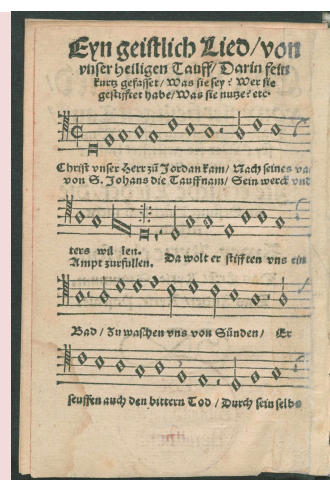 Eyn geistlich Lied/von
vnser heiligen Tauff/Darin fein
kurtz gefasset/Was sie sey? Wer sie
gestifftet habe/Was sie nutze? etc.
Christ vnser Herr zů Jordan kam/Nach seines va
von S. Johans die Tauff nam/Sein werck vnd
ters wil len. Da wolt er stifften vns ein
Ampt zurfullen.
Bad/Zu waschen vns von Sünden/ Er
seuffen auch den bittern Tod/Durch sein selbs